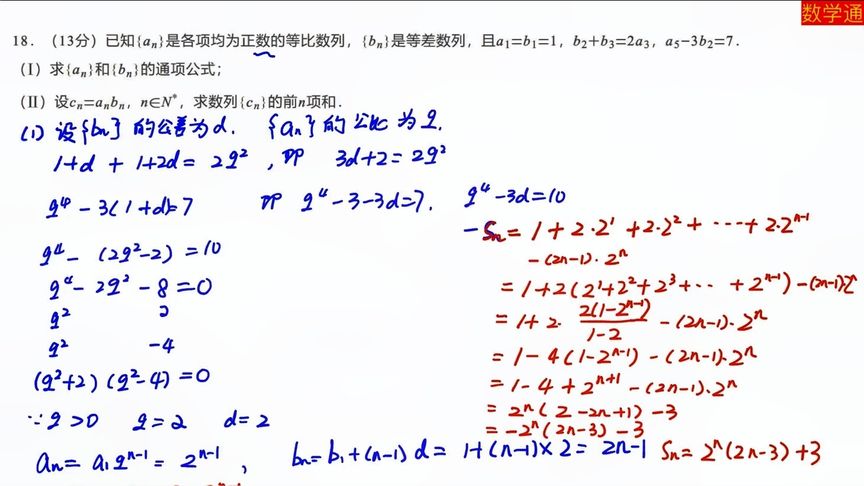 数学通
18．（13分）已知{aₙ}是各项均为正数的等比数列，{bₙ}是等差数列，且a₁=b₁=1，b₂+b₃=2a₃，a₅−3b₂=7．
（I）求{aₙ}和{bₙ}的通项公式；
（II）设cₙ=aₙbₙ，n∈N*，求数列{cₙ}的前n项和．
(1) 设{bn}的公差为d. {an}的公比为q.
1+d + 1+2d = 2q² ，即 3d+2 = 2q²
q⁴ - 3(1+d)=7 即 q⁴-3-3d=7. q⁴-3d=10
q⁴ - (2q²-2) = 10
q⁴ - 2q² - 8 = 0
q² 2
q² -4
(q²+2)(q²-4) = 0
∵q>0 q=2 d=2
an = a₁qⁿ⁻¹ = 2ⁿ⁻¹ , bn = b₁+(n-1)d = 1+(n-1)×2 = 2n-1
-Sn = 1+2·2¹+2·2²+ ··· +2·2ⁿ⁻¹
-(2n-1)·2ⁿ
= 1+2(2¹+2²+2³+ ·· + 2ⁿ⁻¹) - (2n-1)2ⁿ
= 1+2· 2(1-2ⁿ⁻¹)/(1-2) - (2n-1)·2ⁿ
= 1-4(1-2ⁿ⁻¹) - (2n-1)·2ⁿ
= 1-4+2ⁿ⁺¹ - (2n-1)·2ⁿ
= 2ⁿ(2-2n+1) - 3
= -2ⁿ(2n-3) - 3
Sn = 2ⁿ(2n-3)+3